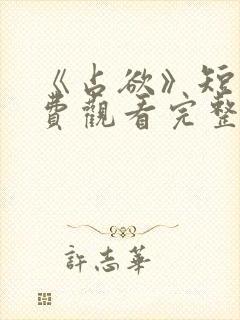 《占欲》短
費觀看完整
許志華